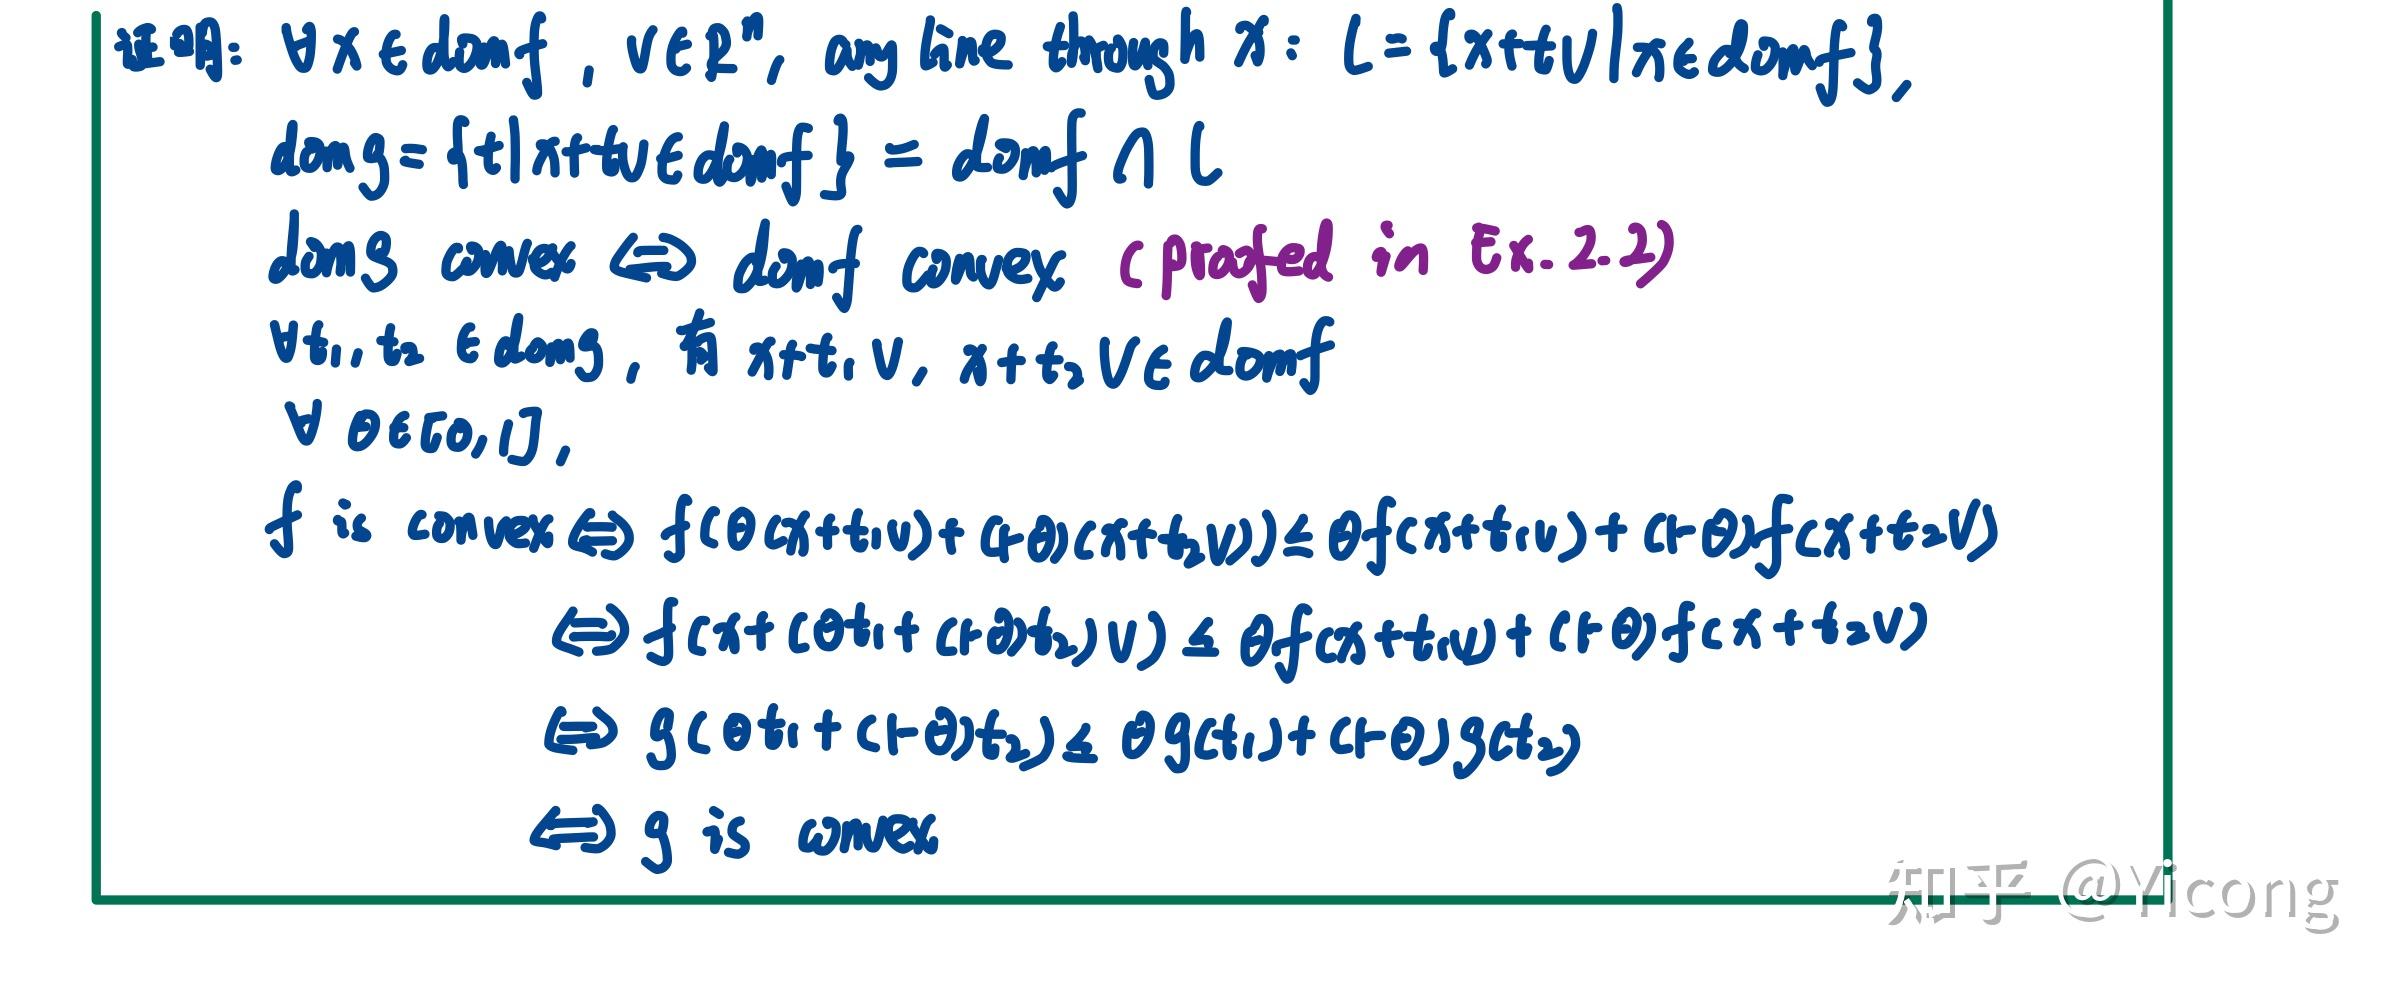 证明: ∀x∈domf, v∈Rⁿ, any line through x: L={x+tv|x∈domf},
domg={t|x+tv∈domf} = domf ∩ L
domg convex ⇔ domf convex (proofed in Ex.2.2)
∀t₁,t₂ ∈domg, 有 x+t₁v, x+t₂v∈domf
∀ θ∈[0,1],
f is convex ⇔ f(θ(x+t₁v)+(1-θ)(x+t₂v))≤θf(x+t₁v)+(1-θ)f(x+t₂v)
⇔ f(x+(θt₁+(1-θ)t₂)v)≤θf(x+t₁v)+(1-θ)f(x+t₂v)
⇔ g(θt₁+(1-θ)t₂)≤θg(t₁)+(1-θ)g(t₂)
⇔ g is convex
知乎 @Yicong